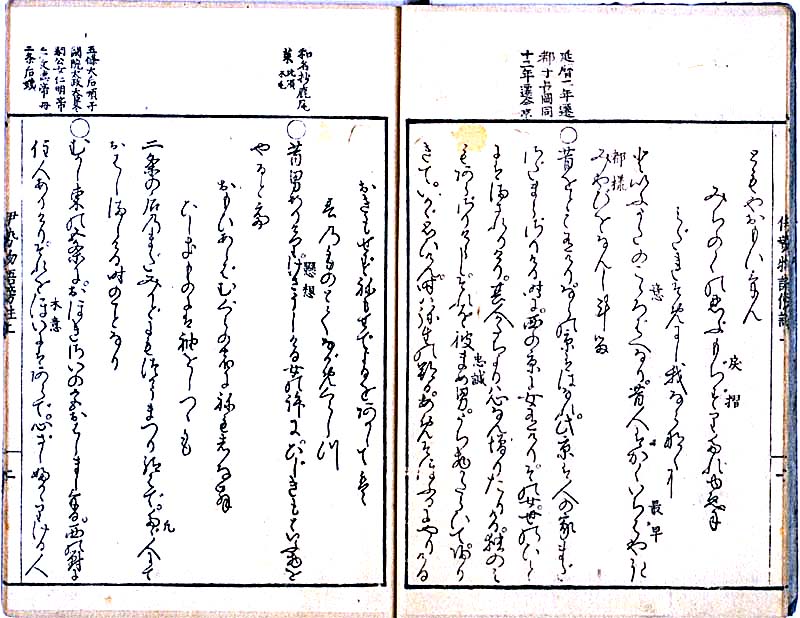 延暦二年遷
都于長岡同
十三年遷今京
ともやおもひけん
戻摺
みちのくの忍ぶもぢずりたれゆゑに
みだれそめにし我ならなくに
といふうたのこゝろばへなり。昔人はかくいちはやき
最早
都様
みやびをなんしける
昔をとこ有けり。ならの京ははなれ此京は人の家まだ
さだまらざりける時に。西の京に女有けり。その女。世の人に
はまされりけり。其人かたちより心なん増りたりける。独のみ
忠誠
もあらざりけらし。それを彼まめ男。うち物かたらひて。帰り
きて。いかゞ思ひけん。時は弥生の朔。あめそほふるにやりける
おきもせずねもせでよるをあかしては
春のものとてながめくらしつ
和名抄鹿尾
菜 比須木毛
懸想
昔男ありけり。けさうしける女の許に。ひじきもといふ物を
やるとて
おもひあらばむぐらの宿にねもしなん
ひじきものには袖をしつゝも
二条の后のまだみかどにもつかうまつり給はで。たゞ人にて
おはしましける時のことなり
五條大后順子
閑院太政大臣冬
嗣公女仁明帝
后文徳帝母
二条后姨
むかし東の五条に。おほきさいの宮おはしましける。西の対に
本意
住人ありけり。それをほいにはあらで。心ざし深かりける人
伊勢物語傍註上